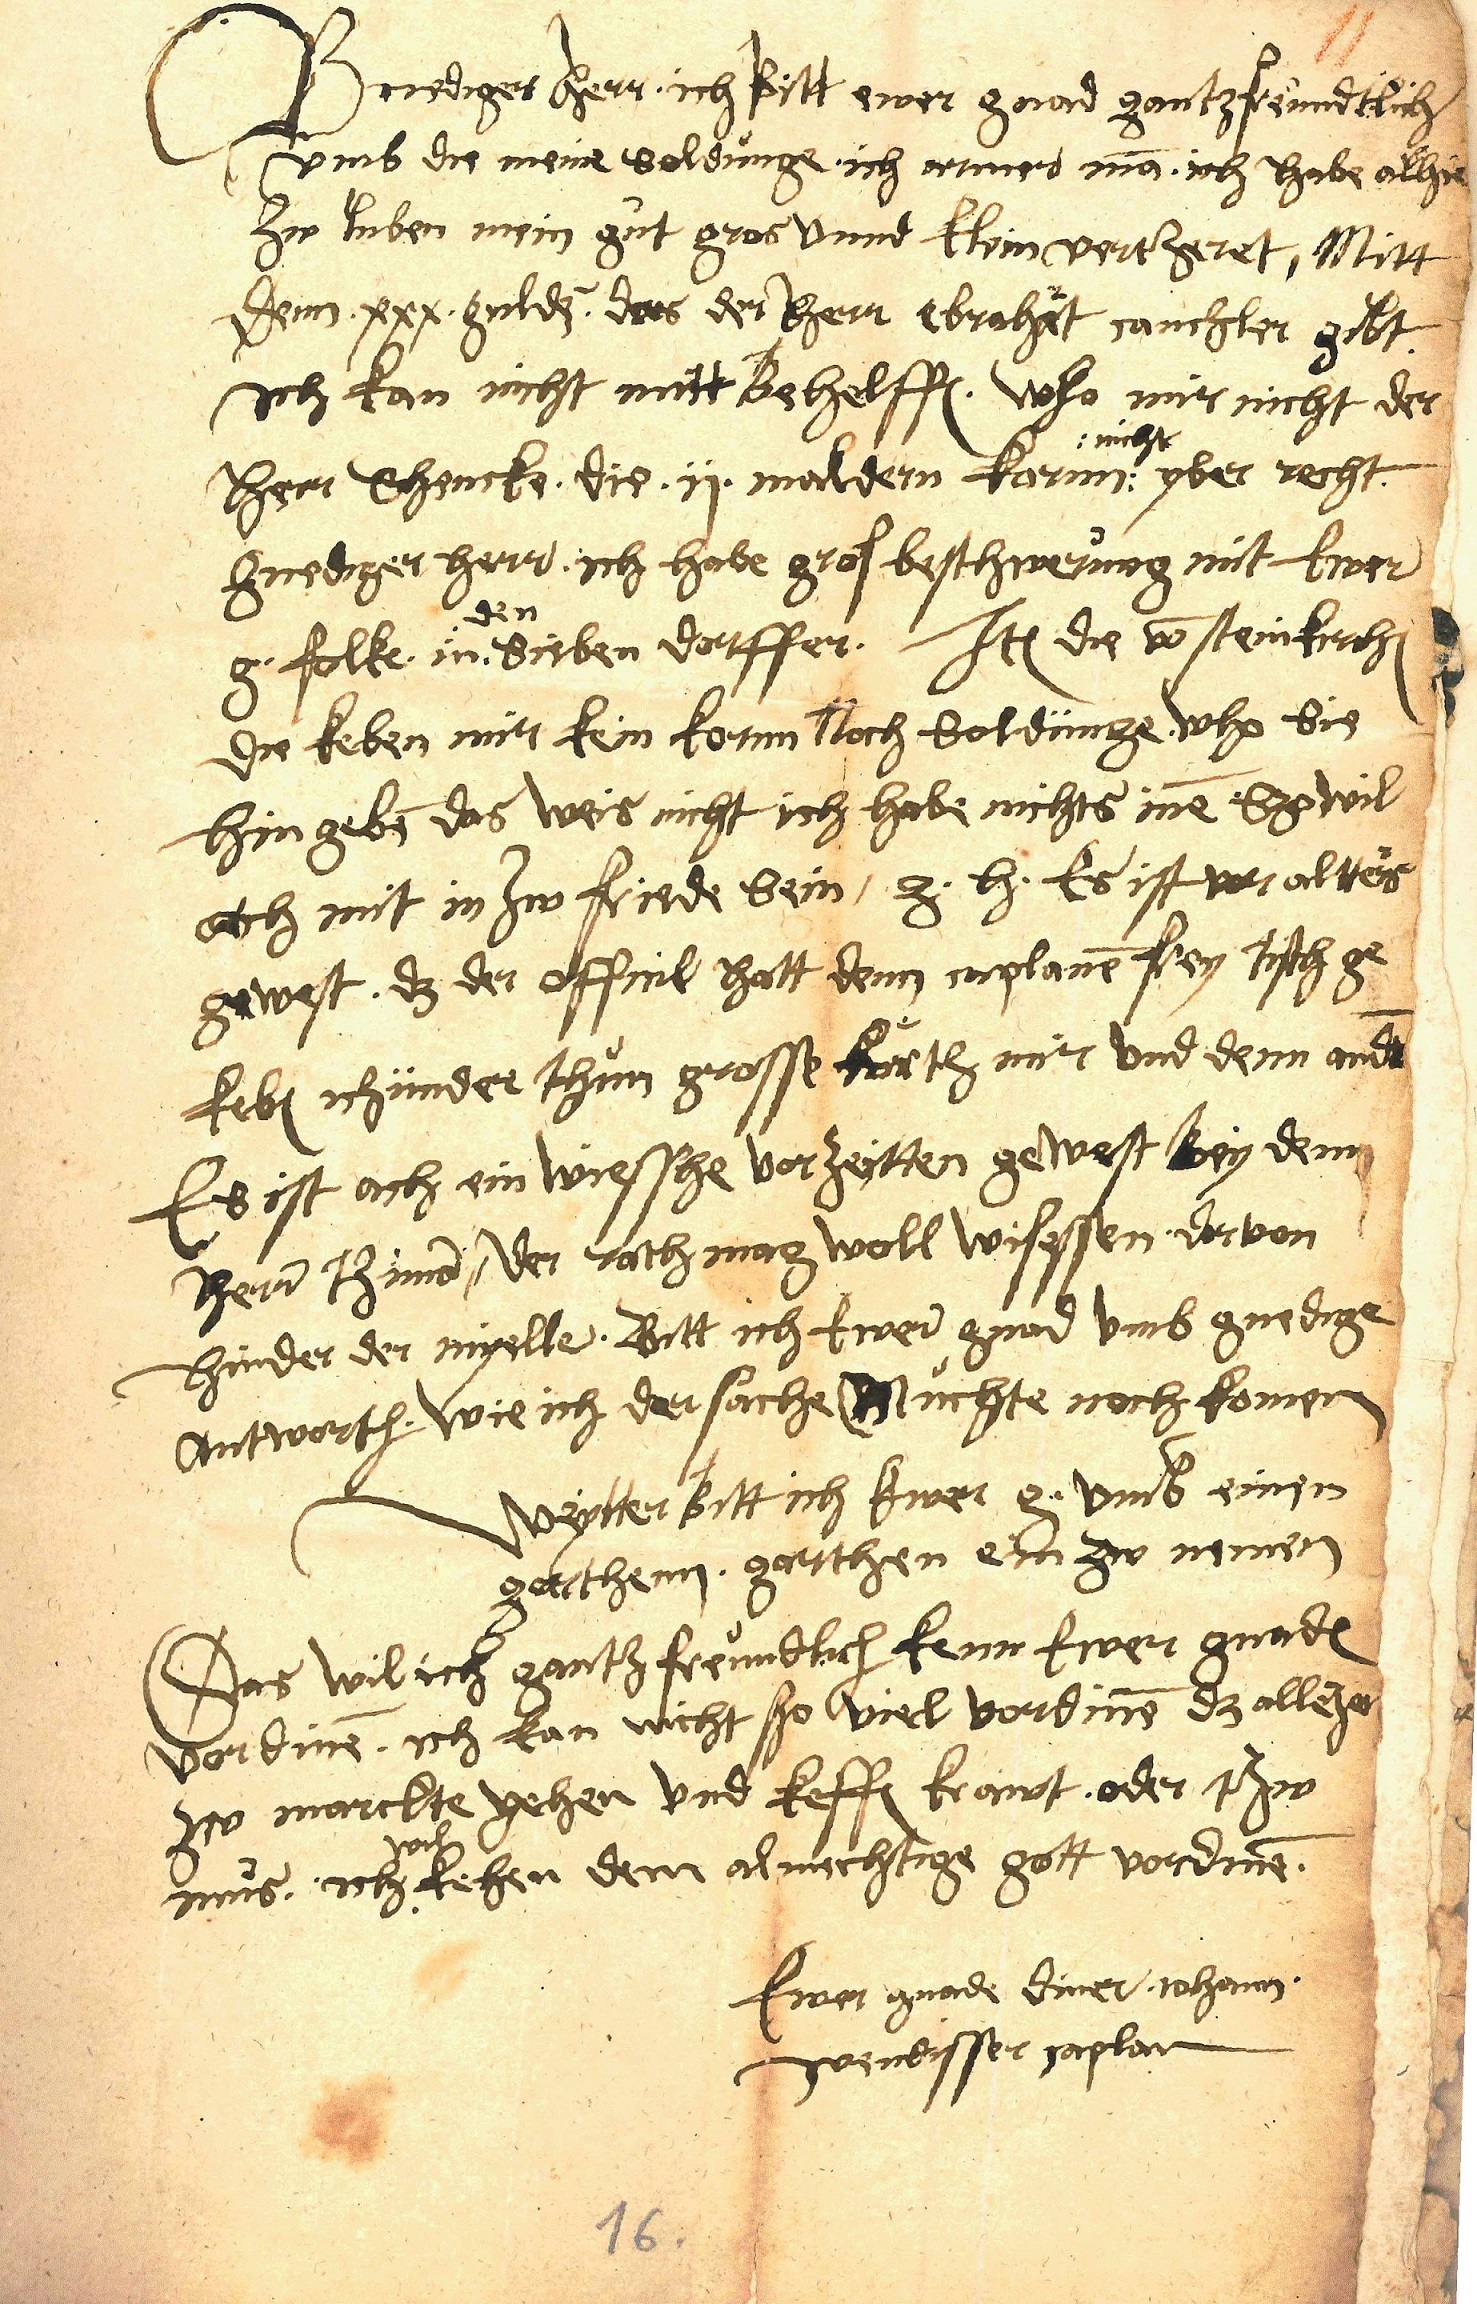 11
Gnediger herr. ich bitt ewer gnad gantz freundtlich
vmb die meine soldunge. ich armer mā. ich habe alhie
zw luben mein gut gros vnnd klein vertzeret, Mitt
denn. xxx. guldē. das der herr ebrahat canczler gibt.
ich kan nicht mitt behelffē. who mir nicht der
herr Schencke. die. ij. maldern kornn: :nicht yber recht.
gnediger herr. ich habe gros beschwerung mit Ewer
g. folke. in. den Sieben dorffer. Itē die vō steinkirchē
die keben mir kein kornn Noch Soldunge. who Sie
hin gebē das weis nicht ich habe nichts inē Sho wil
och mit in zw friede sein, g. h. Es ist vor alters
gewest. dz der official hatt denn caplanē frey tisch ge
kebē ichunder thun grosse kurtz mir vnd denn andr
Es ist och ein wiessche vorzeitten gewest bey denn
herr der rath mag woll wissen. dorvon
hinder der myelle. Bitt ich Ewer gnad vmb gnedige
antworth. wie ich der sache Muchte noch komen
Weytter bitt ich Ewer g. vmb einen
garthenn. garthen ein zw nemen
Das wil ich gantz freundlich kenn Ewer gnadē
vordinē. ich kan nicht sho viel vordinē dz alletze
zw marckte gehen vnd keffē krawt. oder
mus. ich wil kehen dem almechtige gott vordinē.
Ewer gnade diner. iohann.
wendisser caplan
16.